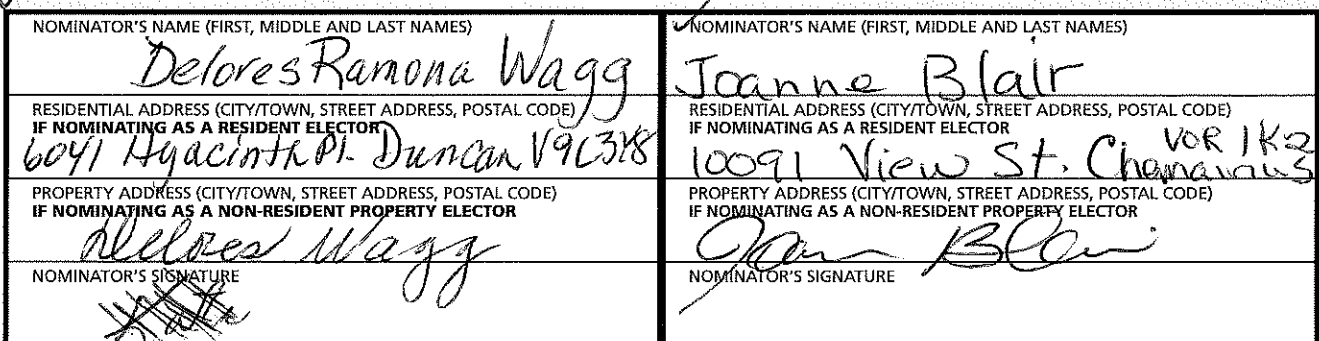 NOMINATOR'S NAME (FIRST, MIDDLE AND LAST NAMES)
Delores Ramona Wagg
RESIDENTIAL ADDRESS (CITY/TOWN, STREET ADDRESS, POSTAL CODE)
IF NOMINATING AS A RESIDENT ELECTOR
6041 Hyacinth Pl. Duncan V9L3Y8
PROPERTY ADDRESS (CITY/TOWN, STREET ADDRESS, POSTAL CODE)
IF NOMINATING AS A NON-RESIDENT PROPERTY ELECTOR
Delores Wagg
NOMINATOR'S SIGNATURE
NOMINATOR'S NAME (FIRST, MIDDLE AND LAST NAMES)
Joanne Blair
RESIDENTIAL ADDRESS (CITY/TOWN, STREET ADDRESS, POSTAL CODE)
IF NOMINATING AS A RESIDENT ELECTOR
V0R 1K2
10091 View St. Chemainus
PROPERTY ADDRESS (CITY/TOWN, STREET ADDRESS, POSTAL CODE)
IF NOMINATING AS A NON-RESIDENT PROPERTY ELECTOR
Joanne Blair
NOMINATOR'S SIGNATURE